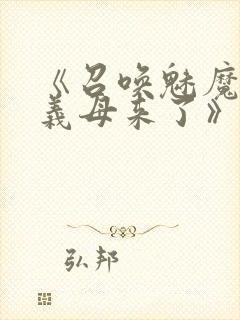 《召唤魅魔
義母来了》
弘邦